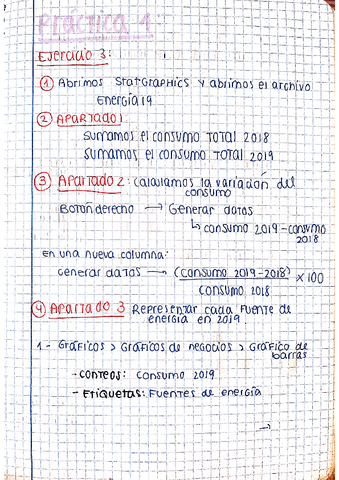 Práctica 1:
Ejercicio 3:
① Abrimos Statgraphics y abrimos el archivo
Energía 19
② APARTADO 1
Sumamos el consumo TOTAL 2018
Sumamos el consumo TOTAL 2019
③ APARTADO 2: Calculamos la variación del
consumo
Botón derecho → Generar datos
↳ consumo 2019 - consumo
2018
En una nueva columna:
Generar datos → (consumo 2019-2018) × 100
consumo 2018
④ Apartado 3 Representar cada fuente de
energía en 2019.
1- Gráficos > Gráficos de negocios > Gráfico de
barras
- conteos: Consumo 2019
- Etiquetas: Fuentes de energía
→